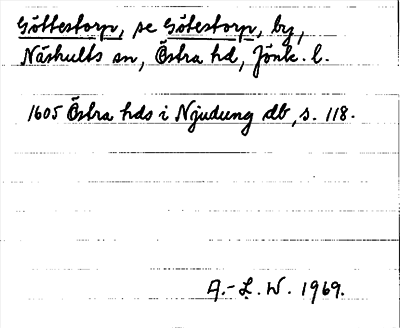 Göttestorp, se Götestorp, by,
Näshults sn, Östra hd, Jönk. l.
1605 Östra hds i Njudung db, s. 118.
A.-L. W. 1969.